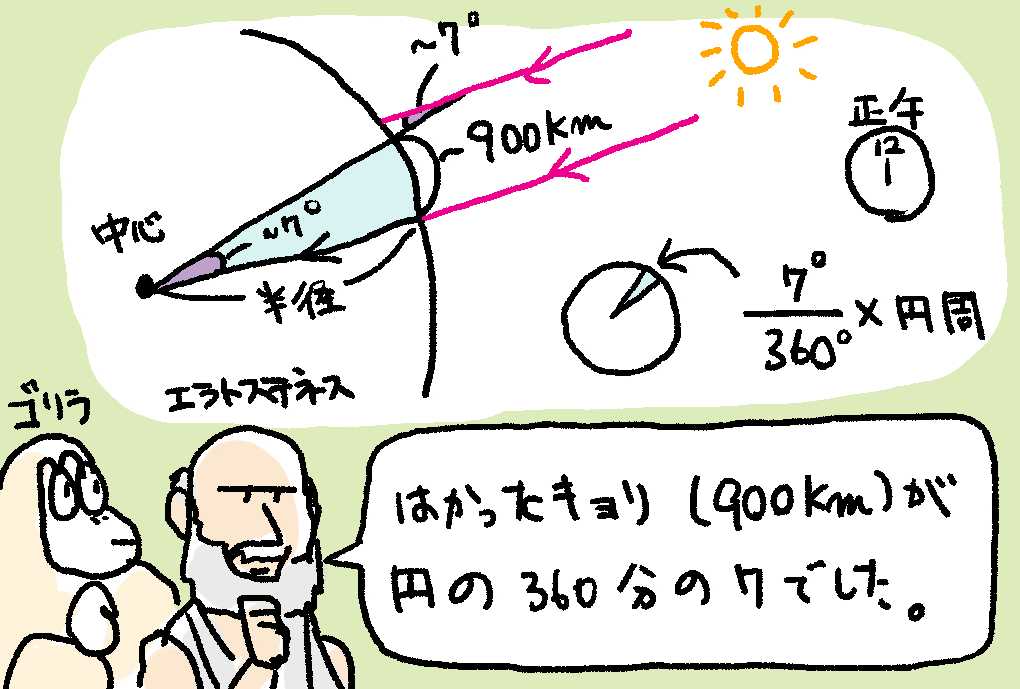 ~7°
~900km
正午
12
中心
~7°
半径
7°
360°
×円周
エラトステネス
ゴリラ
はかったキョリ(900km)が
円の360分の7でした。